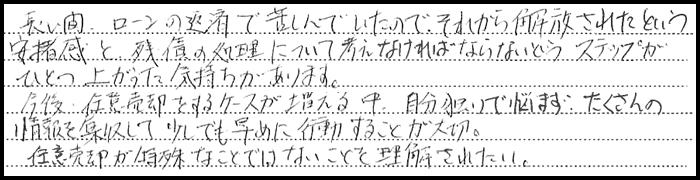 長い間、ローンの返済で苦しんでいたので、それから解放されたという
安堵感と、残債の処理について考えなければならないというステップが
ひとつ上がった気持ちがあります。
今後、任意売却をするケースが増える中、自分独りで悩まず、たくさんの
情報を集収して少しでも早めに行動することが大切。
任意売却が特殊なことではないことを理解されたい。